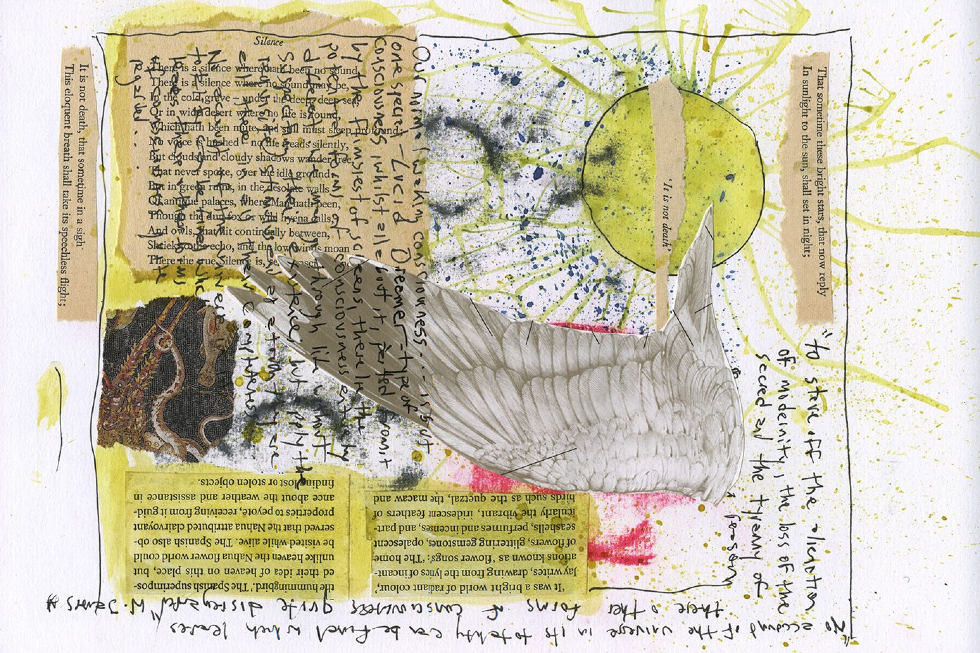 Silence
There is a silence where hath been no sound,
There is a silence where no sound may be,
In the cold grave – under the deep deep sea,
Or in wide desert where no life is found,
Which hath been mute, and still must sleep profound;
No voice is hushed – no life treads silently,
But clouds and cloudy shadows wander free,
That never spoke, over the idle ground:
But in green ruins, in the desolate walls
Of antique palaces, where Man hath been,
Though the dun fox, or wild hyena, calls,
And owls, that flit continually between,
Shriek to the echo, and the low winds moan,
There the true Silence is,
Our normal waking consciousness - is but
one special - Lucid Dreamer - type of
consciousness whilst all about it, parted
by the flimsiest of screens, there lie
potential forms of consciousness entirely
through life
existence; but apply the
It is not death, that sometime in a sigh
This eloquent breath shall take its speechless flight;
'It is not death'
That sometime these bright stars, that now reply
In sunlight to the sun, shall set in night;
"to stave off the alienation
of modernity, the loss of the
sacred and the tyranny of
reason
'It was a bright world of radiant colour,'
Jay writes, drawing from the lyrics of incant-
ations known as 'flower songs': 'The home
of flowers, glittering gemstones, opalescent
seashells, perfumes and incenses, and part-
icularly the vibrant, iridescent feathers of
birds such as the quetzal, the macaw and
the hummingbird.' The Spanish superimpos-
ed their idea of heaven on this place, but
unlike heaven the Nahua flower world could
be visited while alive. The Spanish also ob-
served that the Nahua attributed clairvoyant
properties to peyote, receiving from it guid-
ance about the weather and assistance in
finding lost or stolen objects.
"No account of the universe in its totality can be final which leaves
these other forms of consciousness quite disregarded" W. James